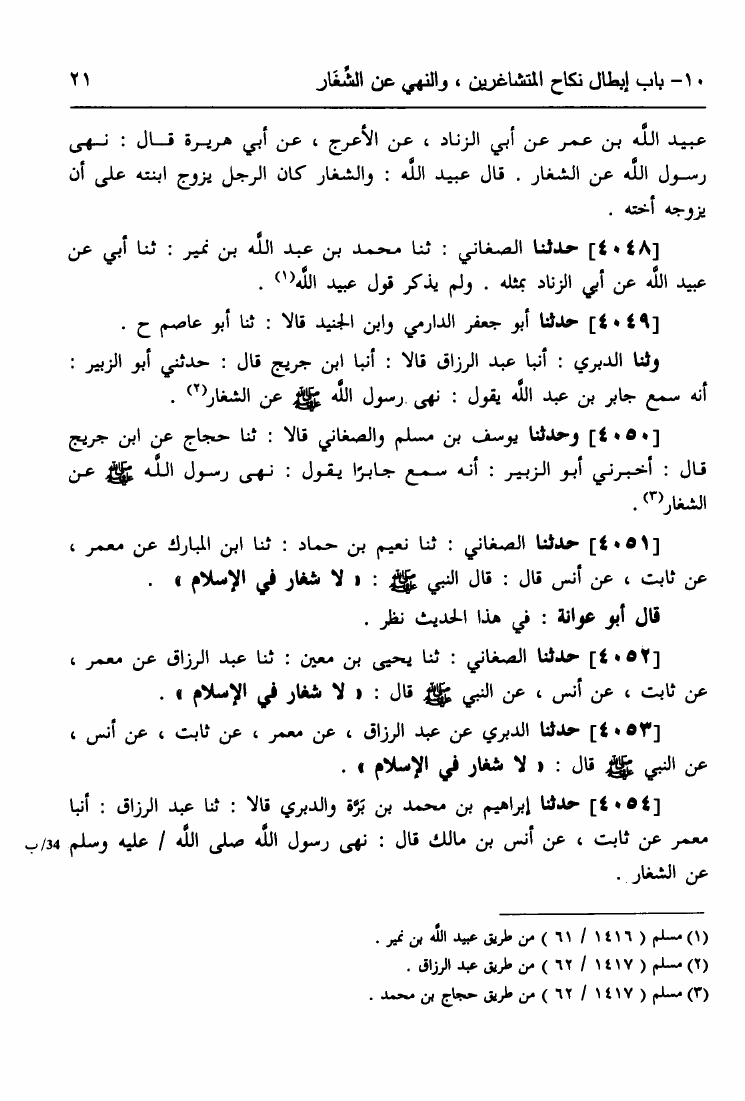 ١٠- باب إبطال نكاح المتشاغرين ، والنهي عن الشِّغَار ٢١
عبيد اللَّه بن عمر عن أبي الزناد ، عن الأعرج ، عن أبي هريرة قال : نهى
رسول اللَّه عن الشغار . قال عبيد اللَّه : والشغار كان الرجل يزوج ابنته على أن
يزوجه أخته .
[٤٠٤٨] حدثنا الصغاني : ثنا محمد بن عبد اللَّه بن نمير : ثنا أبي عن
عبيد اللَّه عن أبي الزناد بمثله . ولم يذكر قول عبيد اللَّه(١) .
[٤٠٤٩] حدثنا أبو جعفر الدارمي وابن الجنيد قالا : ثنا أبو عاصم ح .
وثنا الدبري : أنبا عبد الرزاق قالا : أنبا ابن جريج قال : حدثني أبو الزبير :
أنه سمع جابر بن عبد اللَّه يقول : نهى رسول اللَّه ﷺ عن الشغار(٢) .
[٤٠٥٠] وحدثنا يوسف بن مسلم والصغاني قالا : ثنا حجاج عن ابن جريج
قال : أخبرني أبو الزبير : أنه سمع جابرًا يقول : نهى رسول اللَّه ﷺ عن
الشغار(٣) .
[٤٠٥١] حدثنا الصغاني : ثنا نعيم بن حماد : ثنا ابن المبارك عن معمر ،
عن ثابت ، عن أنس قال : قال النبي ﷺ : « لا شغار في الإسلام » .
قال أبو عوانة : في هذا الحديث نظر .
[٤٠٥٢] حدثنا الصغاني : ثنا يحيى بن معين : ثنا عبد الرزاق عن معمر ،
عن ثابت ، عن أنس ، عن النبي ﷺ قال : « لا شغار في الإسلام » .
[٤٠٥٣] حدثنا الدبري عن عبد الرزاق ، عن معمر ، عن ثابت ، عن أنس ،
عن النبي ﷺ قال : « لا شغار في الإسلام » .
[٤٠٥٤] حدثنا إبراهيم بن محمد بن بَرَّة والدبري قالا : ثنا عبد الرزاق : أنبا
معمر عن ثابت ، عن أنس بن مالك قال : نهى رسول اللَّه صلى اللَّه / عليه وسلم 34/ب
عن الشغار .
(١) مسلم ( ١٤١٦ / ٦١ ) من طريق عبيد اللَّه بن نمير .
(٢) مسلم ( ١٤١٧ / ٦٢ ) من طريق عبد الرزاق .
(٣) مسلم ( ١٤١٧ / ٦٢ ) من طريق حجاج بن محمد .